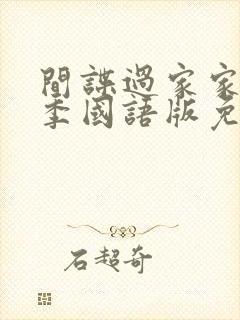 間諜過家家
季國語版免
石超奇